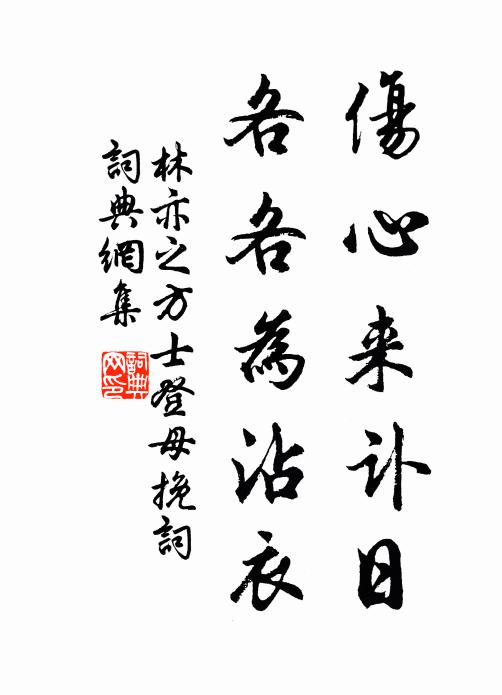 傷心来訃日
各各為沾衣
林亦之方士登母挽詞
詞典網集
詞典网印